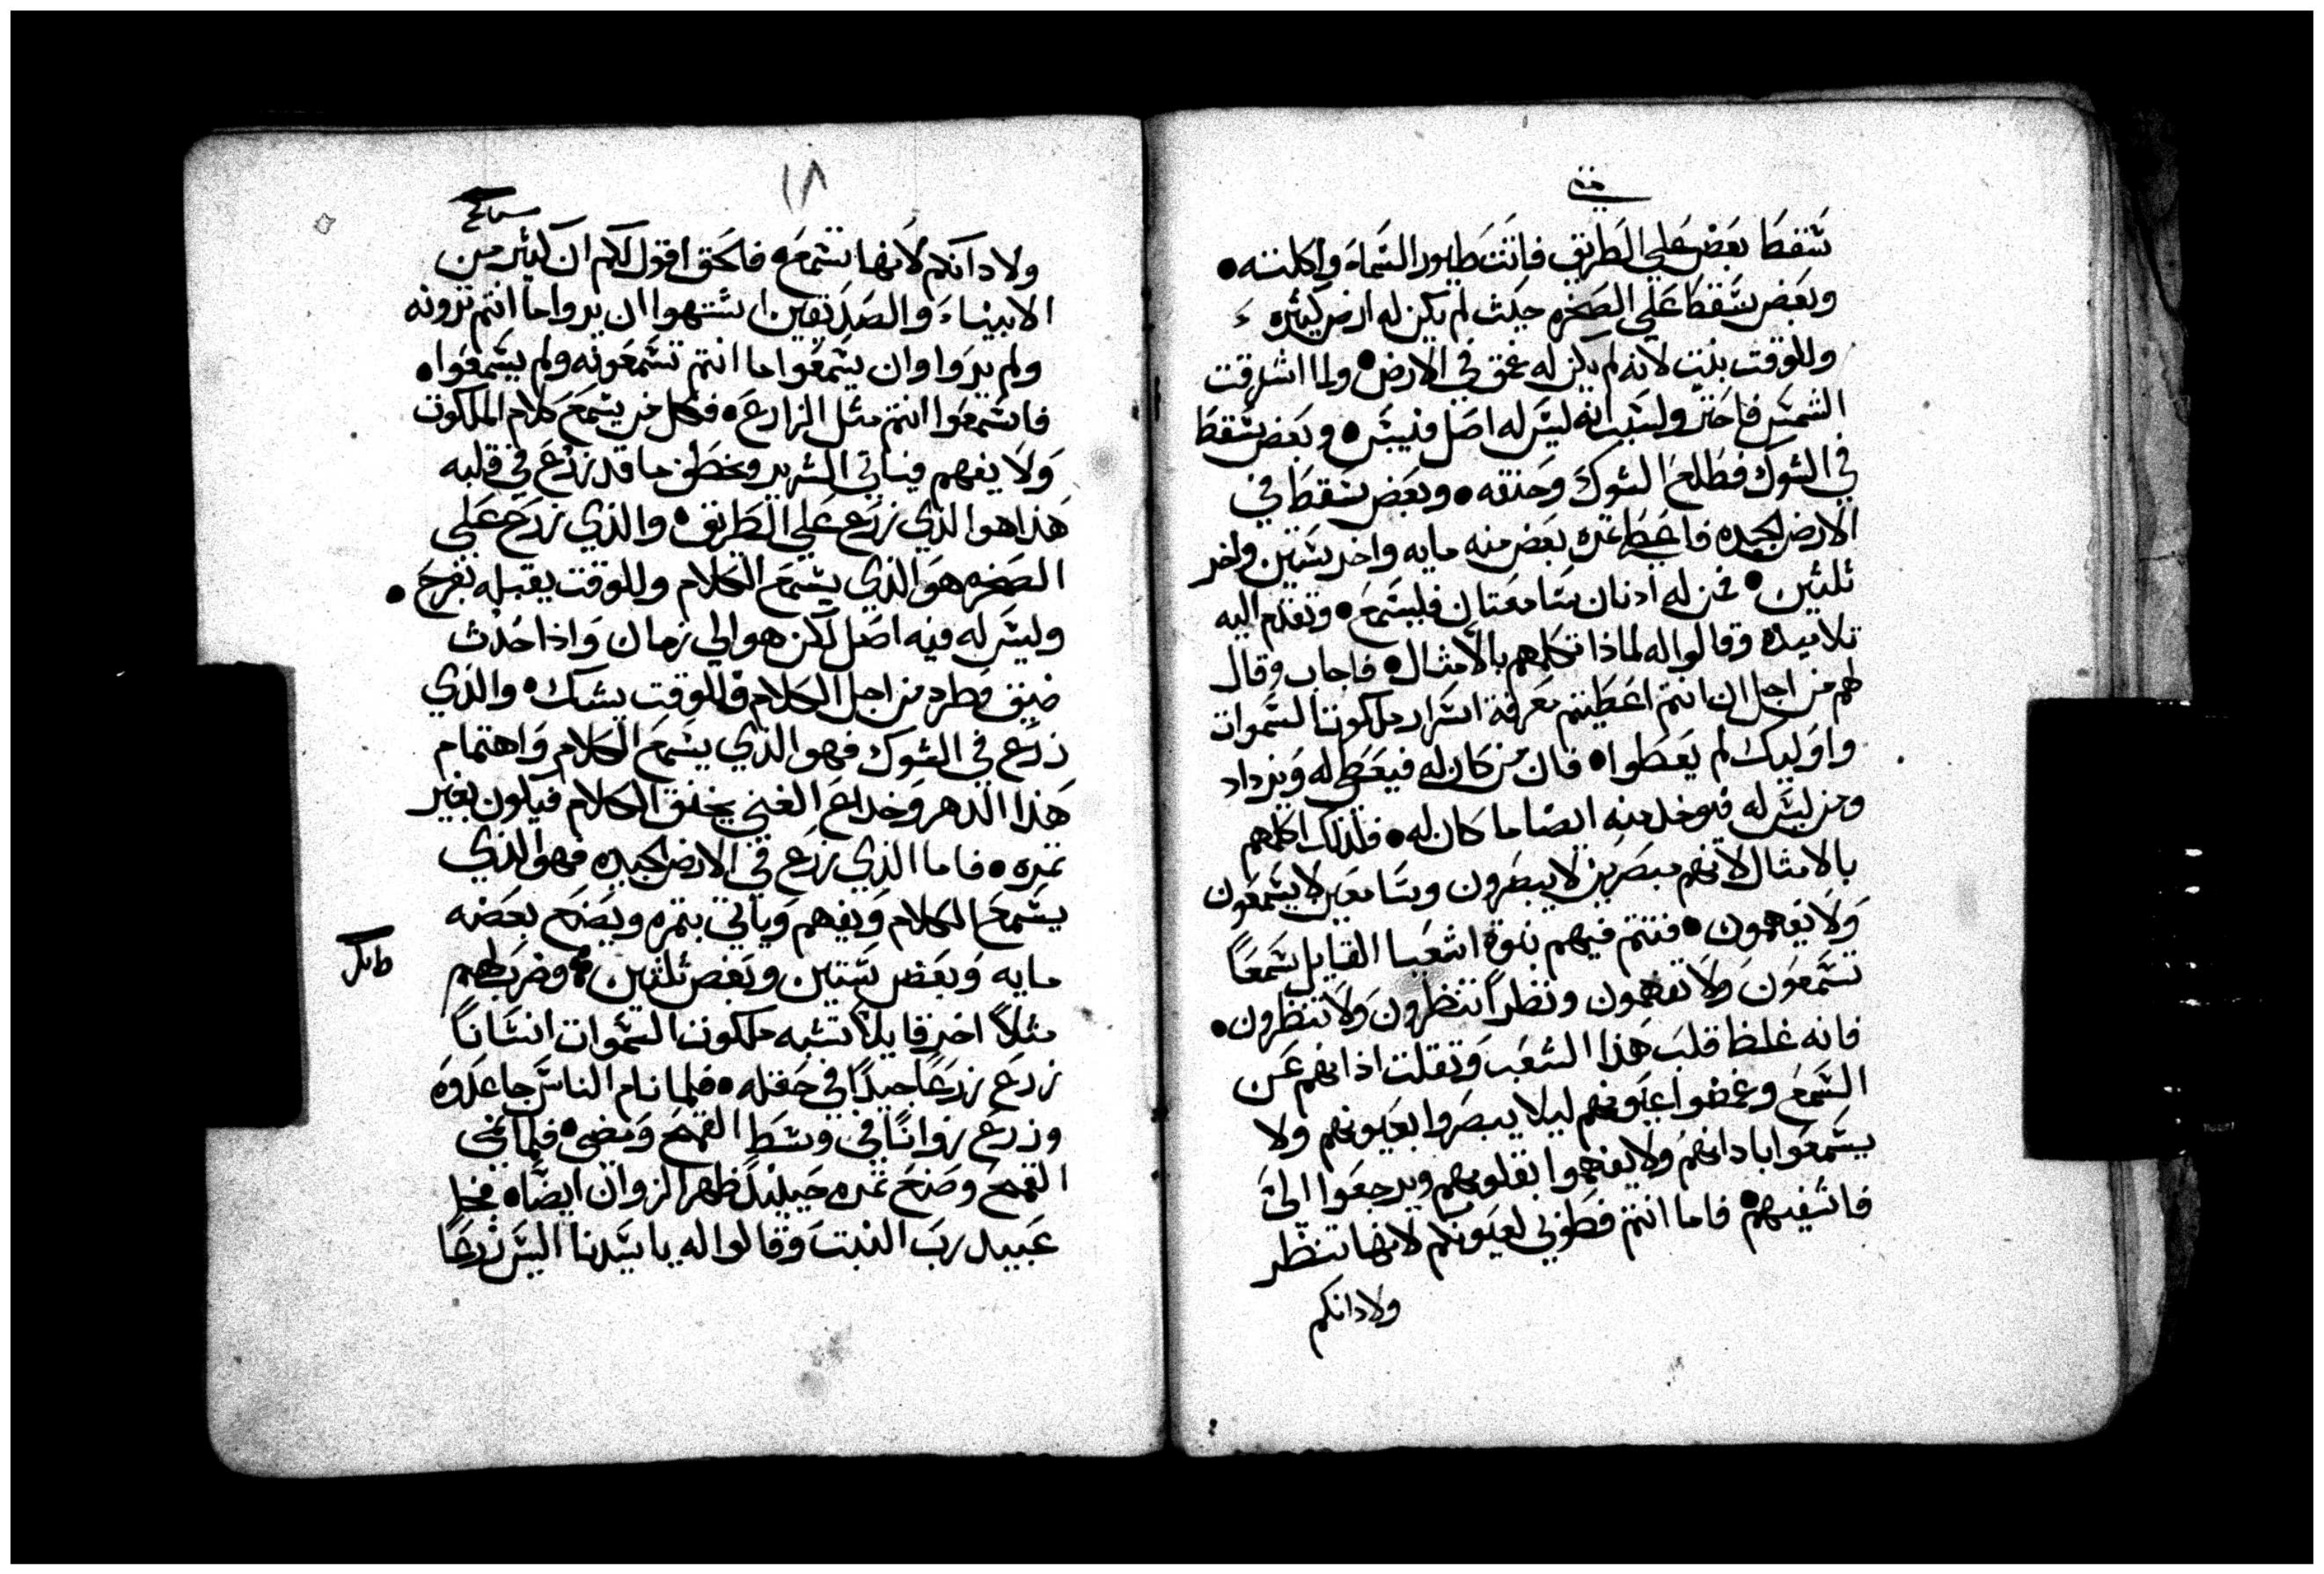 متى
سقط بعض على الطريق فاتت طيور السماء واكلته
وبعض سقط على الصخره حيث لم يكن له ارض كثيره
وللوقت نبت لانه لم يكن له عمق في الارض ولما اشرقت
الشمس فاحتر ولسبب انه ليس له اصل فيبس وبعض سقط
في الشوك فطلع الشوك وخنقه وبعض سقط في
الارض الجيده فاعطى ثمره بعض منه مايه واخر ستين واخر
ثلثين فمن له ادنان سامعتان فليسمع وتقدم اليه
تلاميده وقالوا له لماذا تكلمهم بالامثال فاجاب وقال
لهم من اجل ان انتم اعطيتم معرفة اسرار ملكوت السموات
واوليك لم يعطوا فان من كان له فيعطى له ويزداد
ومن ليس له فيوخد منه ايضا ما كان له فلذلك اكلمهم
بالامثال لانهم مبصرين لا يبصرون وسامعين لا يسمعون
ولا يفهمون فتتم فيهم نبوة اشعيا القايل سمعاً
تسمعون ولا تفهمون ونظراً تنظرون ولا تنظرون
فانه غلظ قلب هذا الشعب وثقلت اذانهم عن
السمع وغمضوا عيونهم ليلا يبصروا بعيونهم ولا
يسمعوا بادانهم ولا يفهموا بقلوبهم ويرجعوا الىّ
فاشفيهم فاما انتم فطوبى لعيونكم لانها تنظر
ولادانكم
١٨
ولادانكم لانها تسمع فالحق اقول لكم ان كثير من
الانبياء والصديقين اشتهوا ان يروا ما انتم ترونه
ولم يروا وان يسمعوا ما انتم تسمعونه ولم يسمعوا
فاسمعوا انتم مثل الزارع فكل من يسمع كلام الملكوت
ولا يفهم فياتي الشرير ويخطف ما قد زرع في قلبه
هذا هو الذي زرع على الطريق والذي زرع على
الصخره هو الذي يسمع الكلام وللوقت يقبله بفرح
وليس له فيه اصل لكن هو الى زمان واذا حدث
ضيق وطرد من اجل الكلام فللوقت يشك والذي
زرع في الشوك فهو الذي يسمع الكلام واهتمام
هذا الدهر وخداع الغنى يخنق الكلام فيكون بغير
ثمره فاما الذي زرع في الارض الجيده فهو الذي
يسمع الكلام ويفهم وياتي بثمره ويصنع بعضه
مايه وبعض ستين وبعض ثلثين وضرب لهم
مثلاً اخر قايلاً تشبه ملكوت السموات انساناً
زرع زرعاً جيداً في حقله فلما نام الناس جا عدوه
وزرع زواناً في وسط القمح ومضى فلما نمى
القمح وصنع ثمره حينيدٍ ظهر الزوان ايضاً فجا
عبيد رب البيت وقالوا له يا سيدنا اليس زرعاً